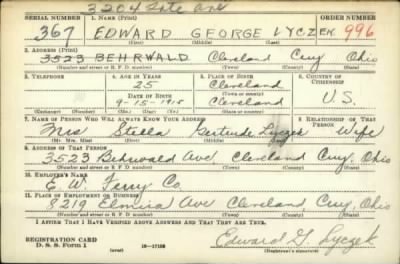 3204 Ave
SERIAL NUMBER 1. NAME (Print) ORDER NUMBER
367 EDWARD GEORGE LYCZEK 996
(First) (Middle) (Last)
2. ADDRESS (Print)
3523 BEHRWALD Cleveland Cuy Ohio
(Number and street or R. F. D. number) (Town) (County) (State)
3. TELEPHONE 4. AGE IN YEARS 5. PLACE OF BIRTH 6. COUNTRY OF CITIZENSHIP
25 Cleveland
DATE OF BIRTH (Town or county)
9-15-1915 Cleveland U.S.
(Exchange) (Number) (Mo.) (Day) (Yr.) (State or country)
7. NAME OF PERSON WHO WILL ALWAYS KNOW YOUR ADDRESS 8. RELATIONSHIP OF THAT PERSON
Mrs Stella Gertrude Lyczek Wife
(Mr., Mrs., Miss) (First) (Middle) (Last)
9. ADDRESS OF THAT PERSON
3523 Behrwald Ave Cleveland Cuy, Ohio
(Number and street or R. F. D. number) (Town) (County) (State)
10. EMPLOYER'S NAME
E. W. Ferry Co.
11. PLACE OF EMPLOYMENT OR BUSINESS
8219 Elmira Ave Cleveland Cuy, Ohio
(Number and street or R. F. D. number) (Town) (County) (State)
I AFFIRM THAT I HAVE VERIFIED ABOVE ANSWERS AND THAT THEY ARE TRUE.
REGISTRATION CARD
D. S. S. Form 1 (over) 16—17105 Edward G. Lyczek
(Registrant's signature)